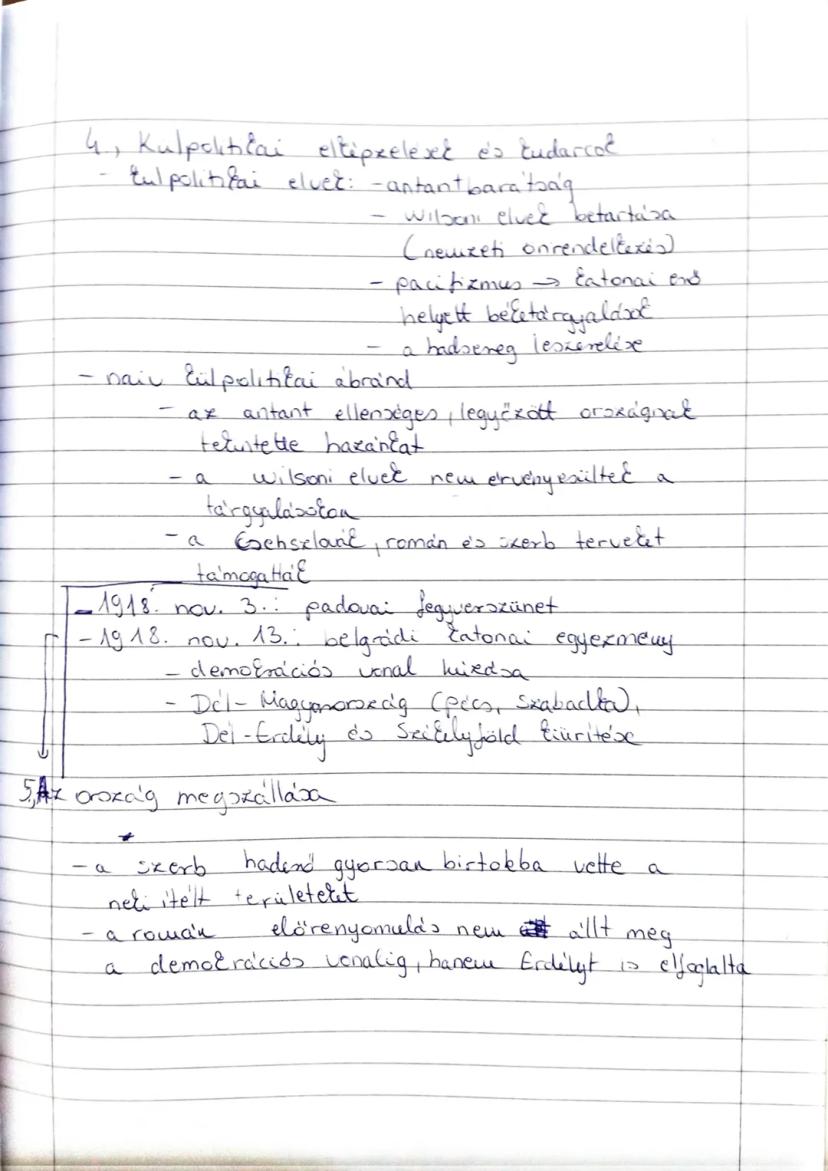 4., Kulpolitikai elképzelések és kudarcok
- kulpolitikai elvek: - antantbarátság
- wilsoni elvek betartása
(nemzeti onrendelkezés)
- pacifizmus → katonai erő
helyett béketárgyalások
- a hadsereg leszerelése
- naiv külpolitikai ábránd
- az antant ellenséges, legyőzött országnak
tekintette hazánkat
- a wilsoni elvek nem érvényesültek a
tárgyalásokon
- a csehszlovák, román és szerb terveket
támogatták
- 1918. nov. 3.: padovai fegyverszünet
- 1918. nov. 13.: belgrádi katonai egyezmény
- demokrációs vonal húzása
- Dél-Magyarország (Pécs, Szabadka),
Dél-Erdély és Székelyföld kiürítése
5, Az ország megszállása
- a szerb haderő gyorsan birtokba vette a
neki ítélt területeket
- a román előrenyomulás nem állt meg
a demokrációs vonalig, hanem Erdélyt is elfoglalta